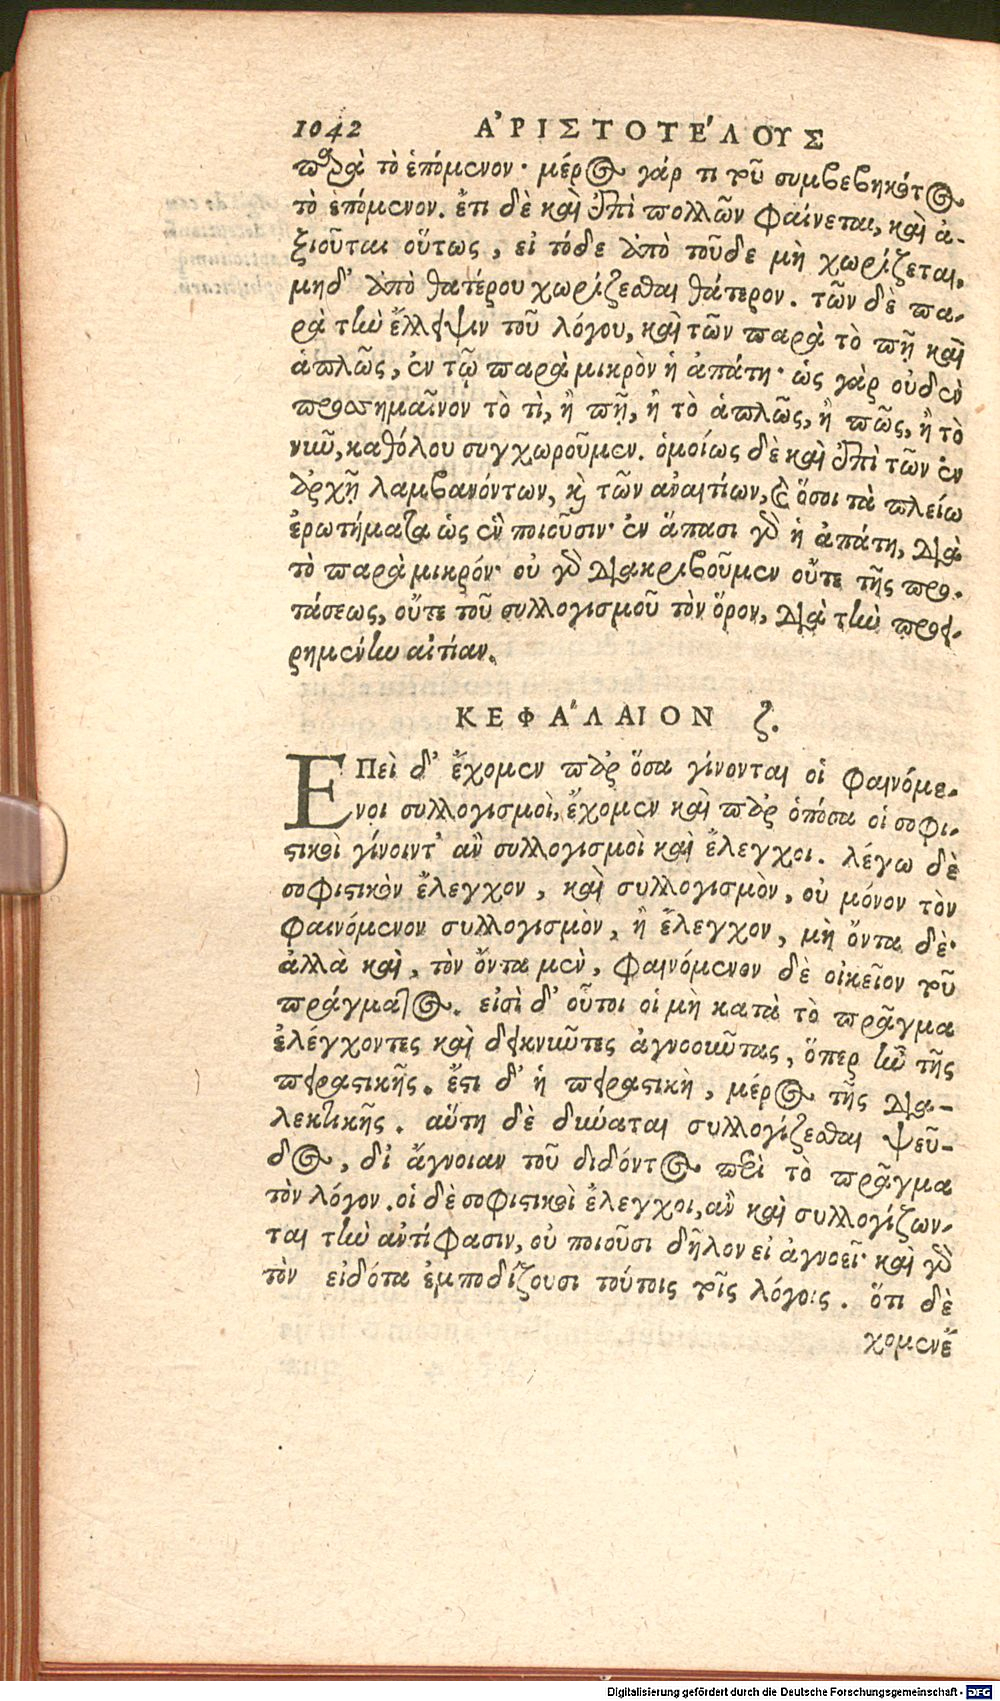 1042 ΑʼΡΙΣΤΟΤΕʹΛΟΥΣ
παρὰ τὸ ἑπόμενον· μέρος γάρ τι τοῦ συμβεβηκότος
τὸ ἑπόμενον. ἔτι δὲ καὶ ἐπὶ πολλῶν φαίνεται, καὶ ἀ-
ξιοῦται οὕτως, εἰ τόδε ἀπὸ τοῦδε μὴ χωρίζεται,
μηδ' ἀπὸ θατέρου χωρίζεσθαι θάτερον. τῶν δὲ πα-
ρὰ τὴν ἔλλειψιν τοῦ λόγου, καὶ τῶν παρὰ τὸ πῇ καὶ
ἁπλῶς, ἐν τῷ παρὰ μικρὸν ἡ ἀπάτη· ὡς γὰρ οὐδὲν
προσσημαῖνον τὸ τὶ, ἢ πῇ, ἢ τὸ ἁπλῶς, ἢ πῶς, ἢ τὸ
νῦν, καθόλου συγχωροῦμεν. ὁμοίως δὲ καὶ ἐπὶ τῶν ἐν
ἀρχῇ λαμβανόντων, καὶ τῶν ἀναιτίων, καὶ ὅσοι τὰ πλείω
ἐρωτήματα ὡς ἓν ποιοῦσιν· ἐν ἅπασι γὰρ ἡ ἀπάτη, διὰ
τὸ παρὰ μικρόν· οὐ γὰρ διακριβοῦμεν οὔτε τῆς προ-
τάσεως, οὔτε τοῦ συλλογισμοῦ τὸν ὅρον, διὰ τὴν προει-
ρημένην αἰτίαν.
ΚΕΦΑʹΛΑΙΟΝ ζ.
ΕΠεὶ δ' ἔχομεν παρ' ὅσα γίνονται οἱ φαινόμε-
νοι συλλογισμοὶ, ἔχομεν καὶ παρ' ὁπόσα οἱ σοφι-
στικοὶ γίνοιντ' ἂν συλλογισμοὶ καὶ ἔλεγχοι. λέγω δὲ
σοφιστικὸν ἔλεγχον, καὶ συλλογισμὸν, οὐ μόνον τὸν
φαινόμενον συλλογισμὸν, ἢ ἔλεγχον, μὴ ὄντα δὲ·
ἀλλὰ καὶ, τὸν ὄντα μὲν, φαινόμενον δὲ οἰκεῖον τοῦ
πράγματος. εἰσὶ δ' οὗτοι οἱ μὴ κατὰ τὸ πρᾶγμα
ἐλέγχοντες καὶ δεικνῦντες ἀγνοοῦντας, ὅπερ ἦν τῆς
πειραστικῆς. ἔστι δ' ἡ πειραστικὴ, μέρος τῆς δια-
λεκτικῆς. αὕτη δὲ δύναται συλλογίζεσθαι ψεῦ-
δος, δι' ἄγνοιαν τοῦ διδόντος περὶ τὸ πρᾶγμα
τὸν λόγον. οἱ δὲ σοφιστικοὶ ἔλεγχοι, ἂν καὶ συλλογίζων-
ται τὴν ἀντίφασιν, οὐ ποιοῦσι δῆλον εἰ ἀγνοεῖ· καὶ γὰρ
τὸν εἰδότα ἐμποδίζουσι τούτοις τοῖς λόγοις. ὅτι δὲ
χομενἔ
Digitalisierung gefördert durch die Deutsche Forschungsgemeinschaft - DFG